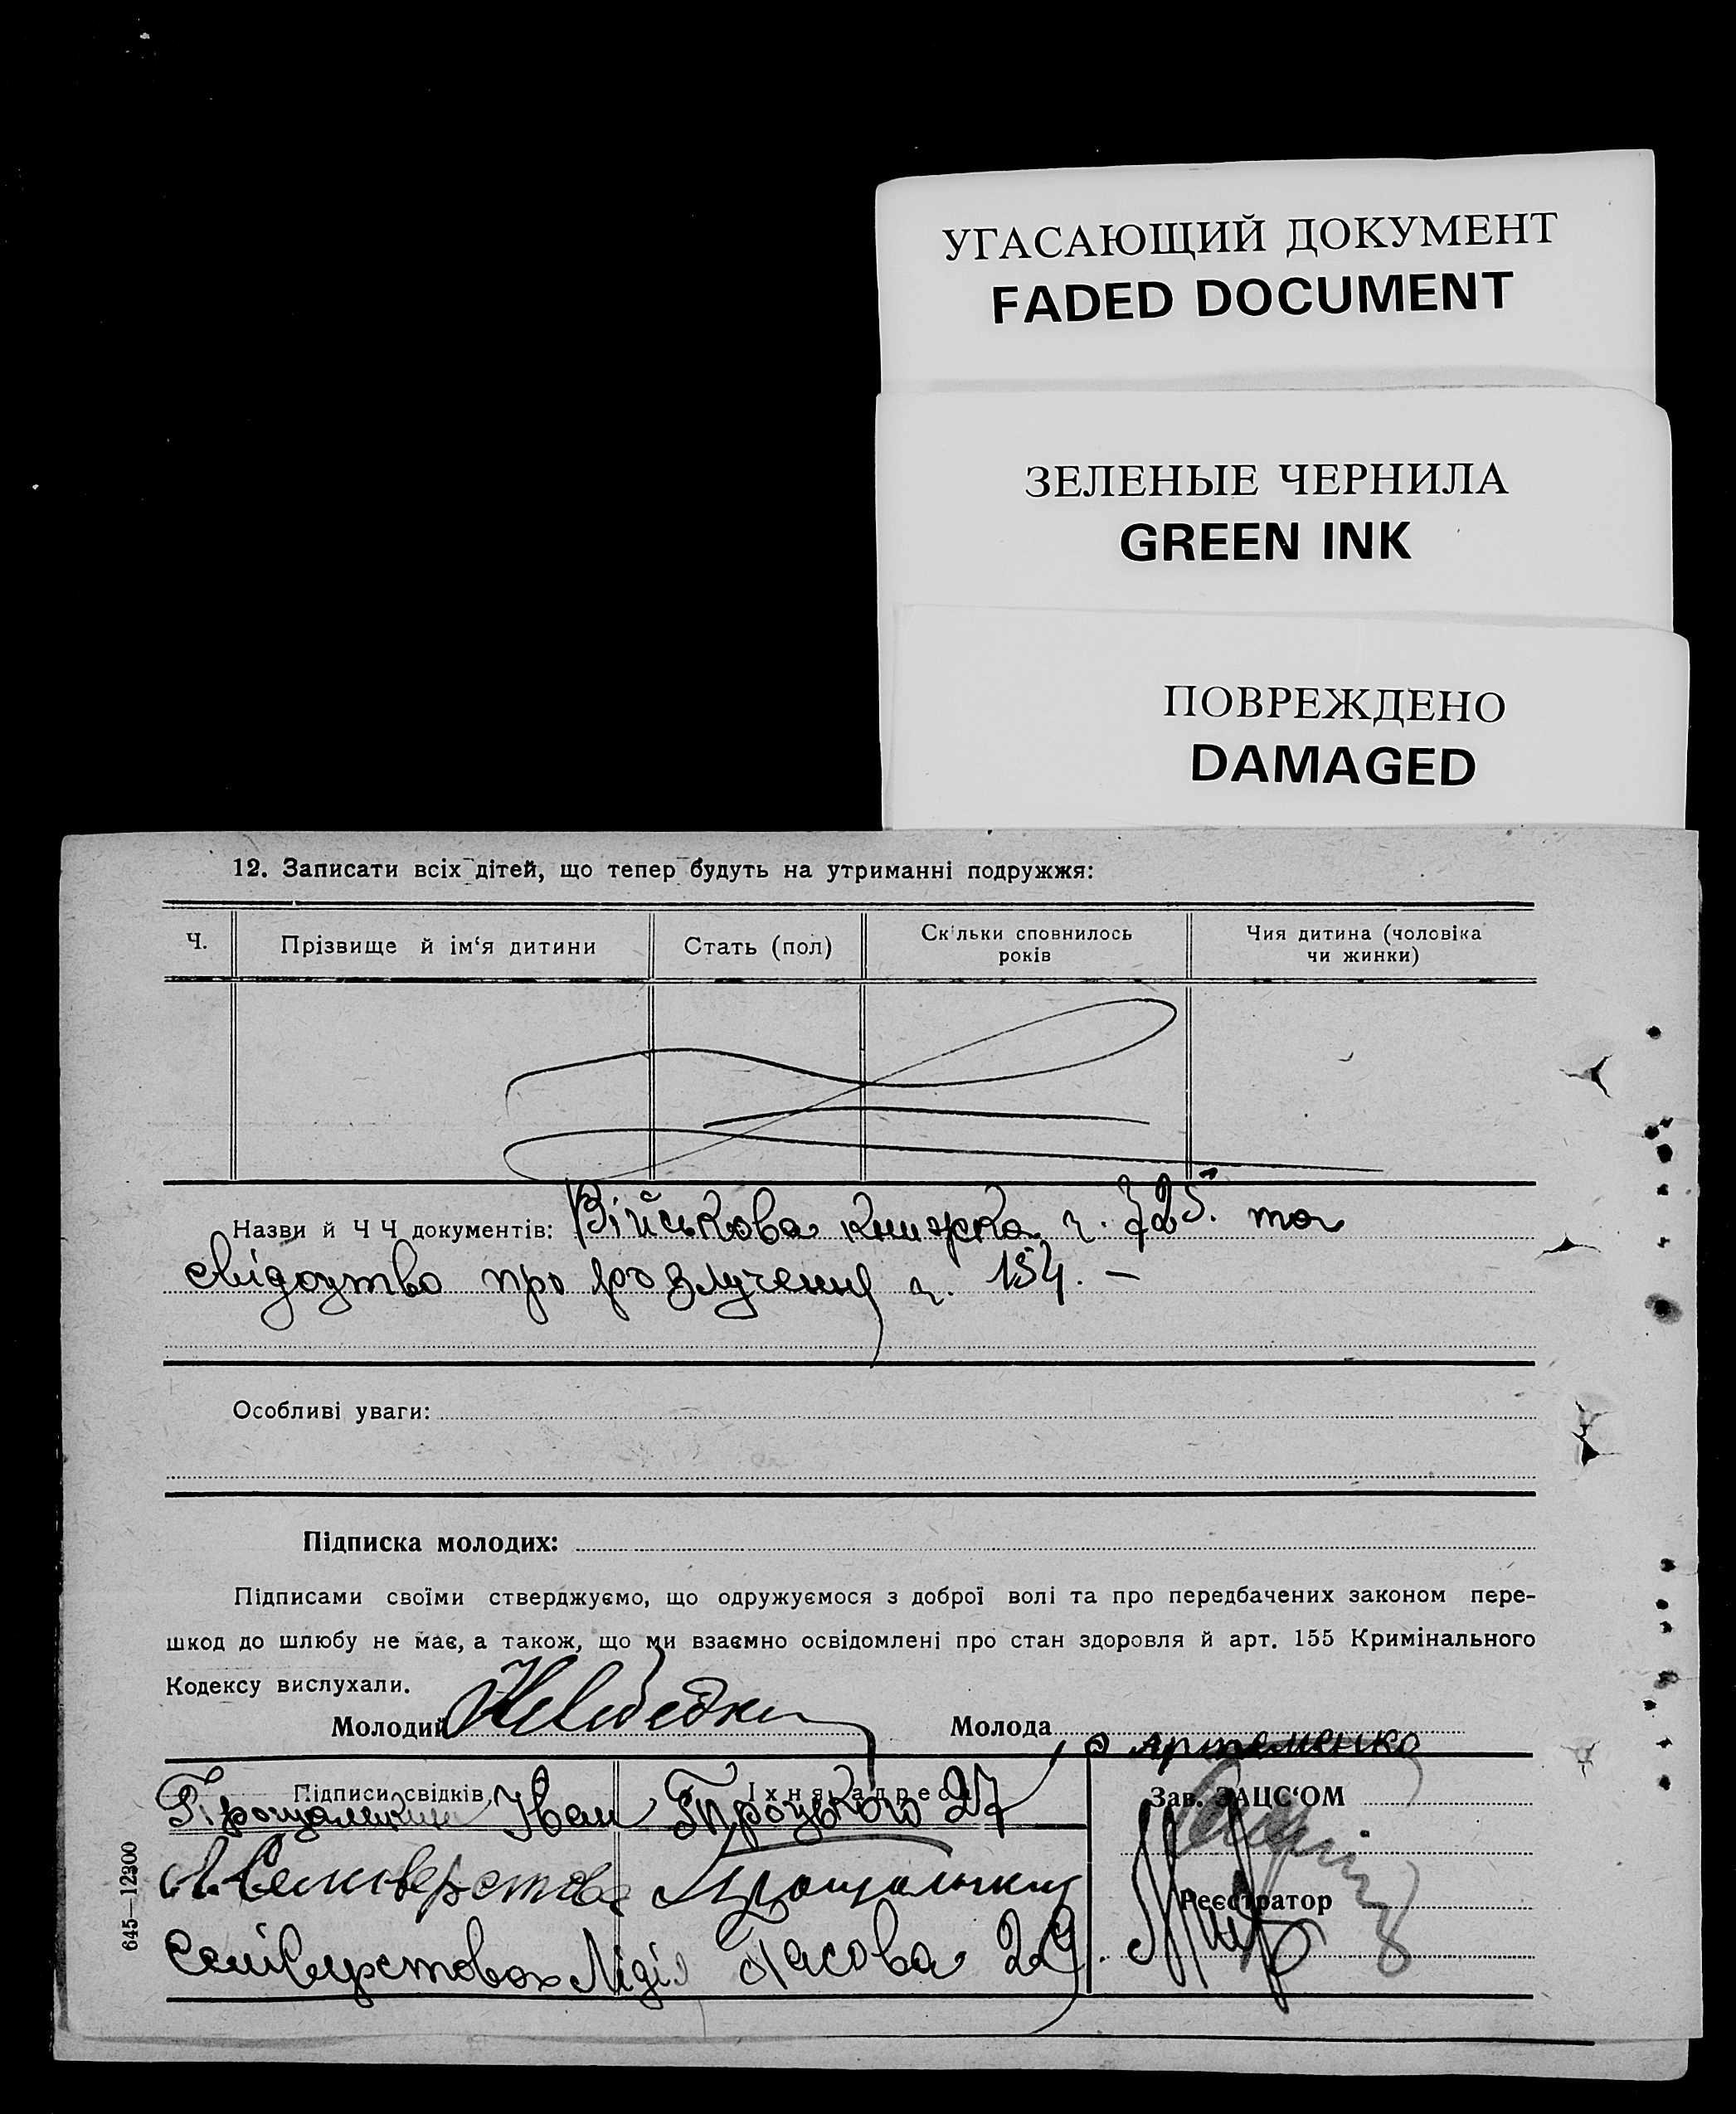 УГАСАЮЩИЙ ДОКУМЕНТ
FADED DOCUMENT
ЗЕЛЕНЫЕ ЧЕРНИЛА
GREEN INK
ПОВРЕЖДЕНО
DAMAGED
12. Записати всіх дітей, що тепер будуть на утриманні подружжя:
Ч.
Прізвище й ім‘я дитини
Стать (пол)
Скільки сповнилось
років
Чия дитина (чоловіка
чи жинки)
Назви й Ч Ч документів: Військова книжка ч. 725. та
свідоцтво про розлучення ч. 154. —
Особливі уваги:
Підписка молодих:
Підписами своїми стверджуємо, що одружуємося з доброї волі та про передбачених законом пере-
шкод до шлюбу не має, а також, що ми взаємно освідомлені про стан здоровля й арт. 155 Кримінального
Кодексу вислухали.
Молодий
Молода Артеменко
Підписи свідків
Їхня адреса
Іван Троцького 27
Зав. ЗАЦС‘ОМ
Реєстратор
Селіверстова Лідія Пасова 29.
645—12300